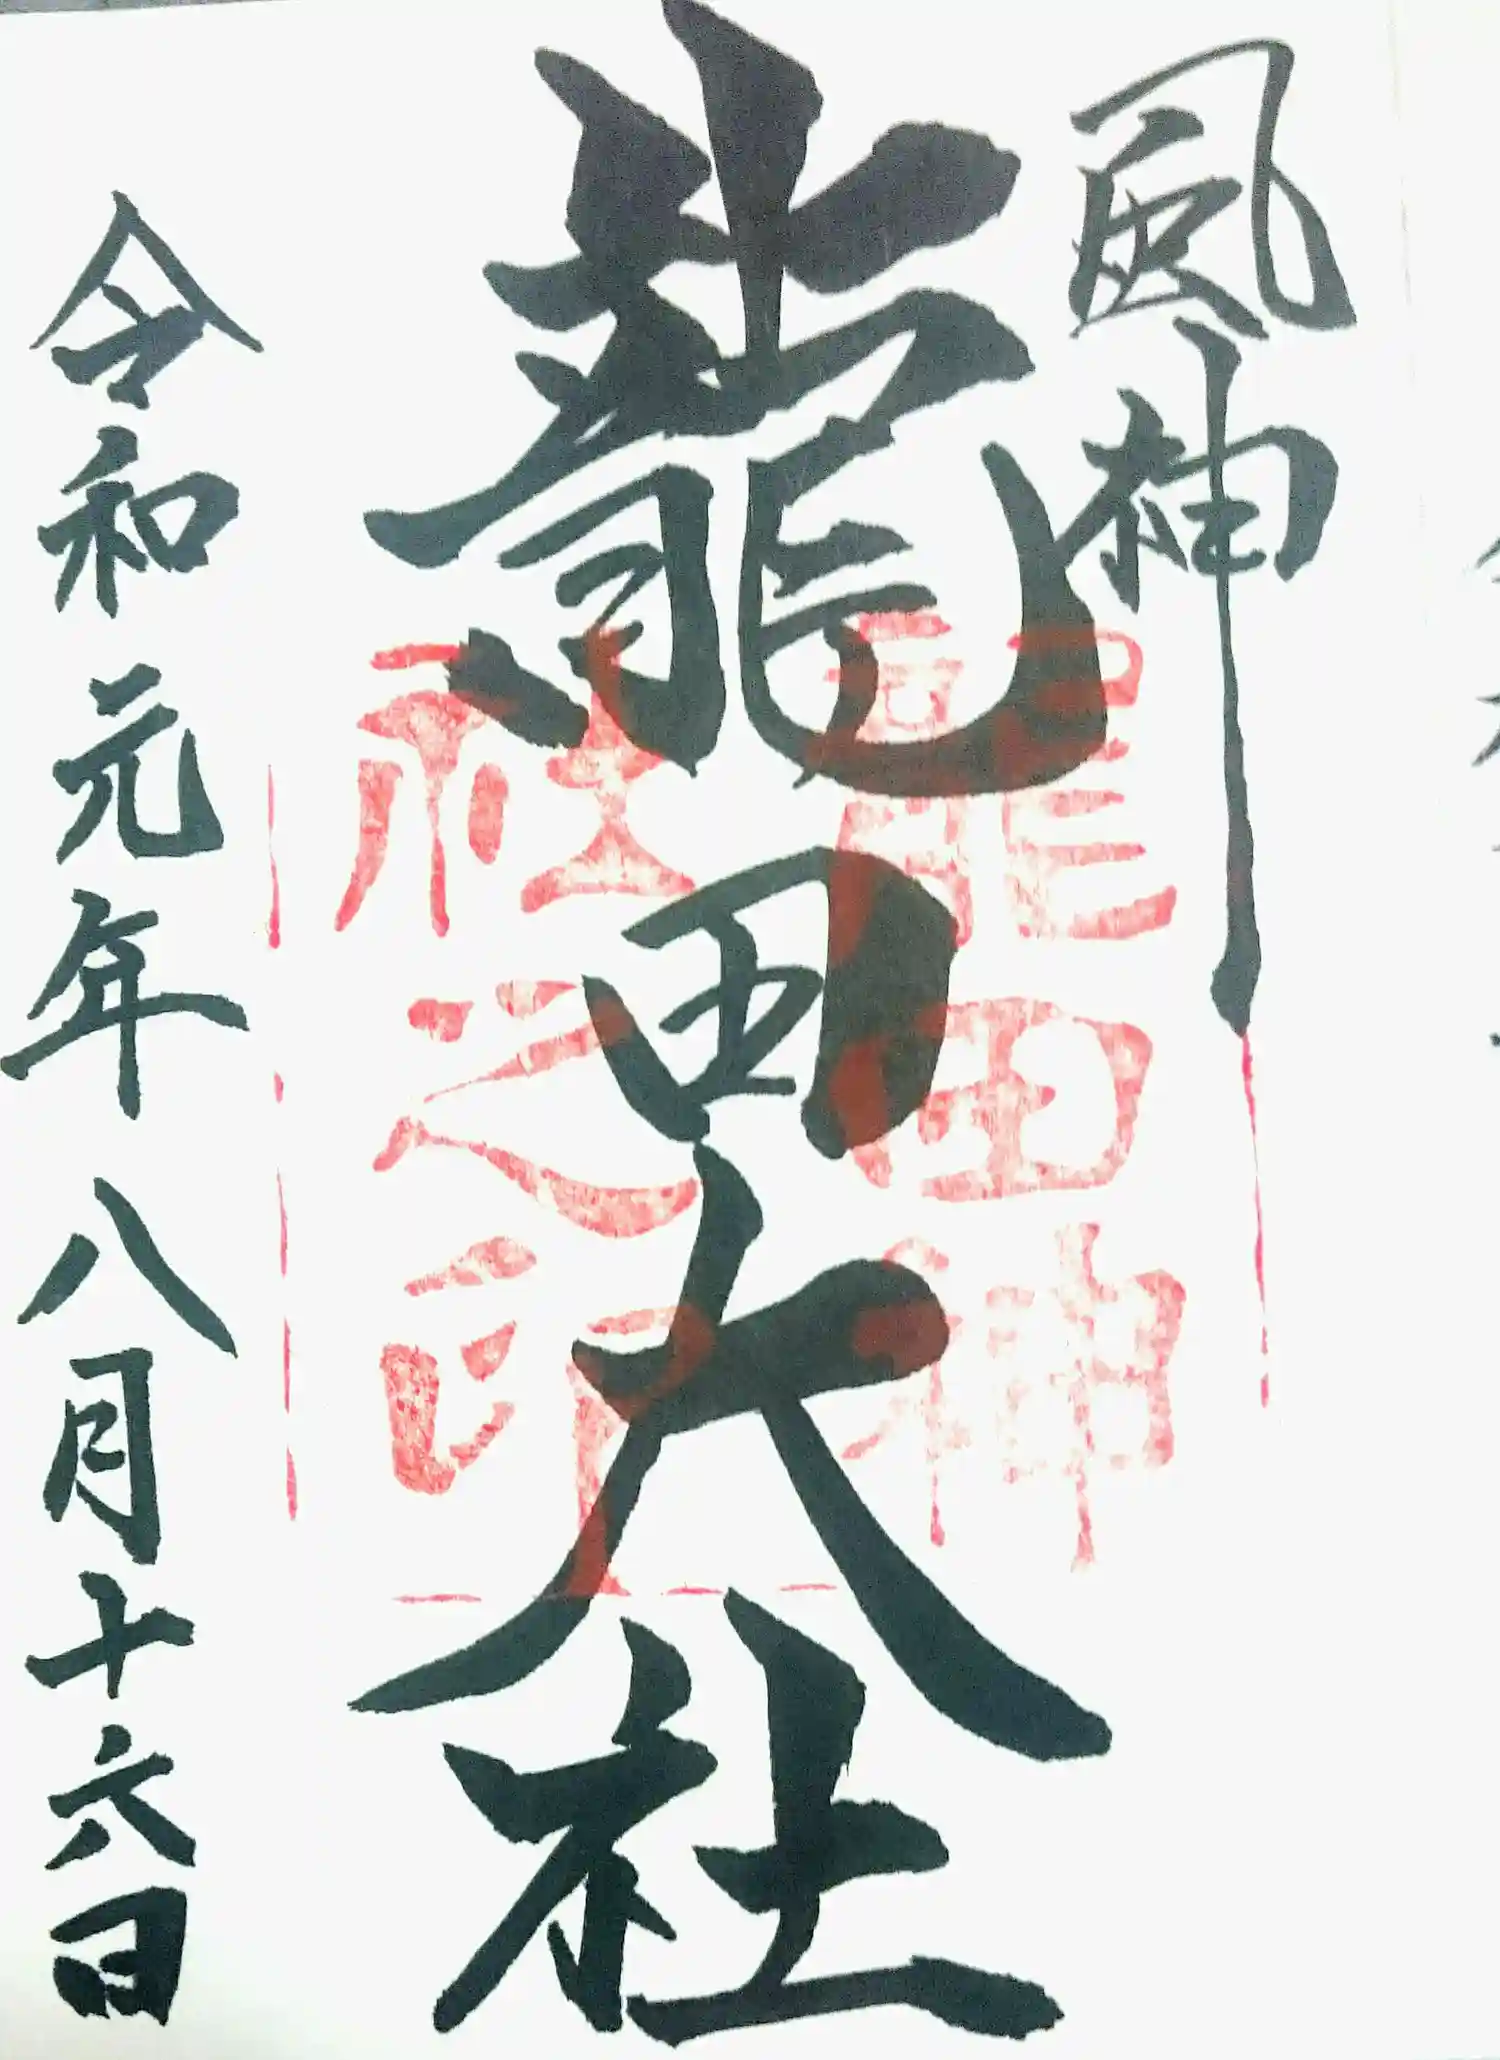 風神
龍田大社
龍田神
社之印
令和元年八月十六日